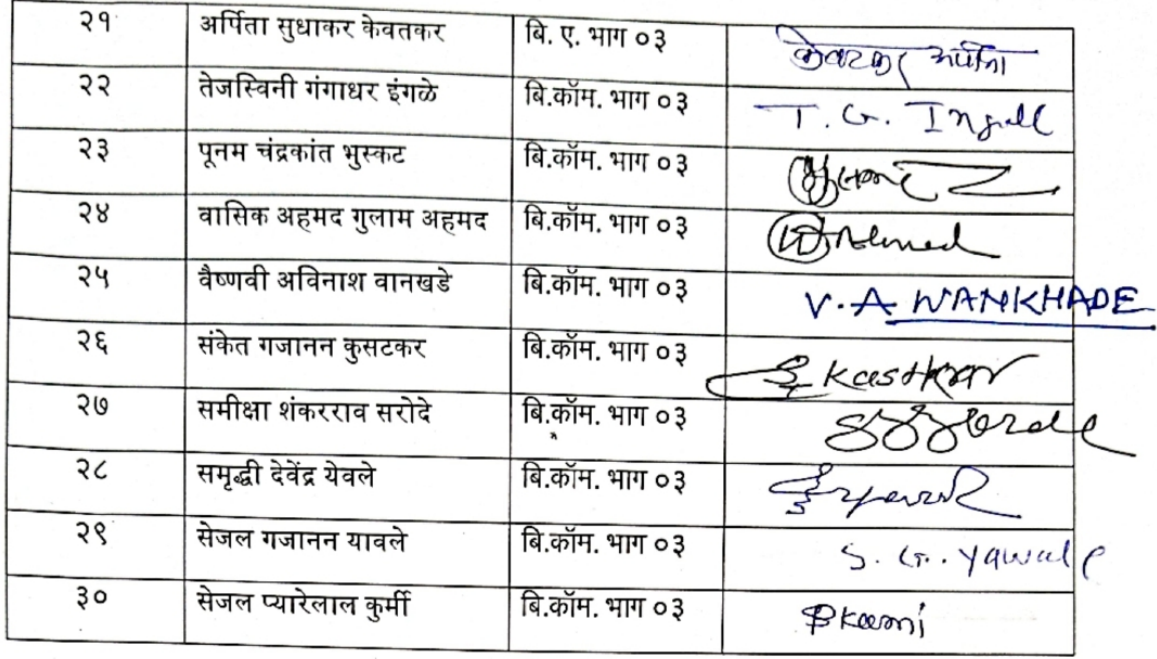 २१ अर्पिता सुधाकर केवतकर बि. ए. भाग ०३ केवटकर अर्पिता
२२ तेजस्विनी गंगाधर इंगळे बि.कॉम. भाग ०३ T. G. Ingall
२३ पूनम चंद्रकांत भुस्कट बि.कॉम. भाग ०३
२४ वासिक अहमद गुलाम अहमद बि.कॉम. भाग ०३
२५ वैष्णवी अविनाश वानखडे बि.कॉम. भाग ०३ V. A WANKHADE
२६ संकेत गजानन कुसटकर बि.कॉम. भाग ०३
२७ समीक्षा शंकरराव सरोदे बि.कॉम. भाग ०३
२८ समृद्धी देवेंद्र येवले बि.कॉम. भाग ०३
२९ सेजल गजानन यावले बि.कॉम. भाग ०३ S. G. Yawale
३० सेजल प्यारेलाल कुर्मी बि.कॉम. भाग ०३